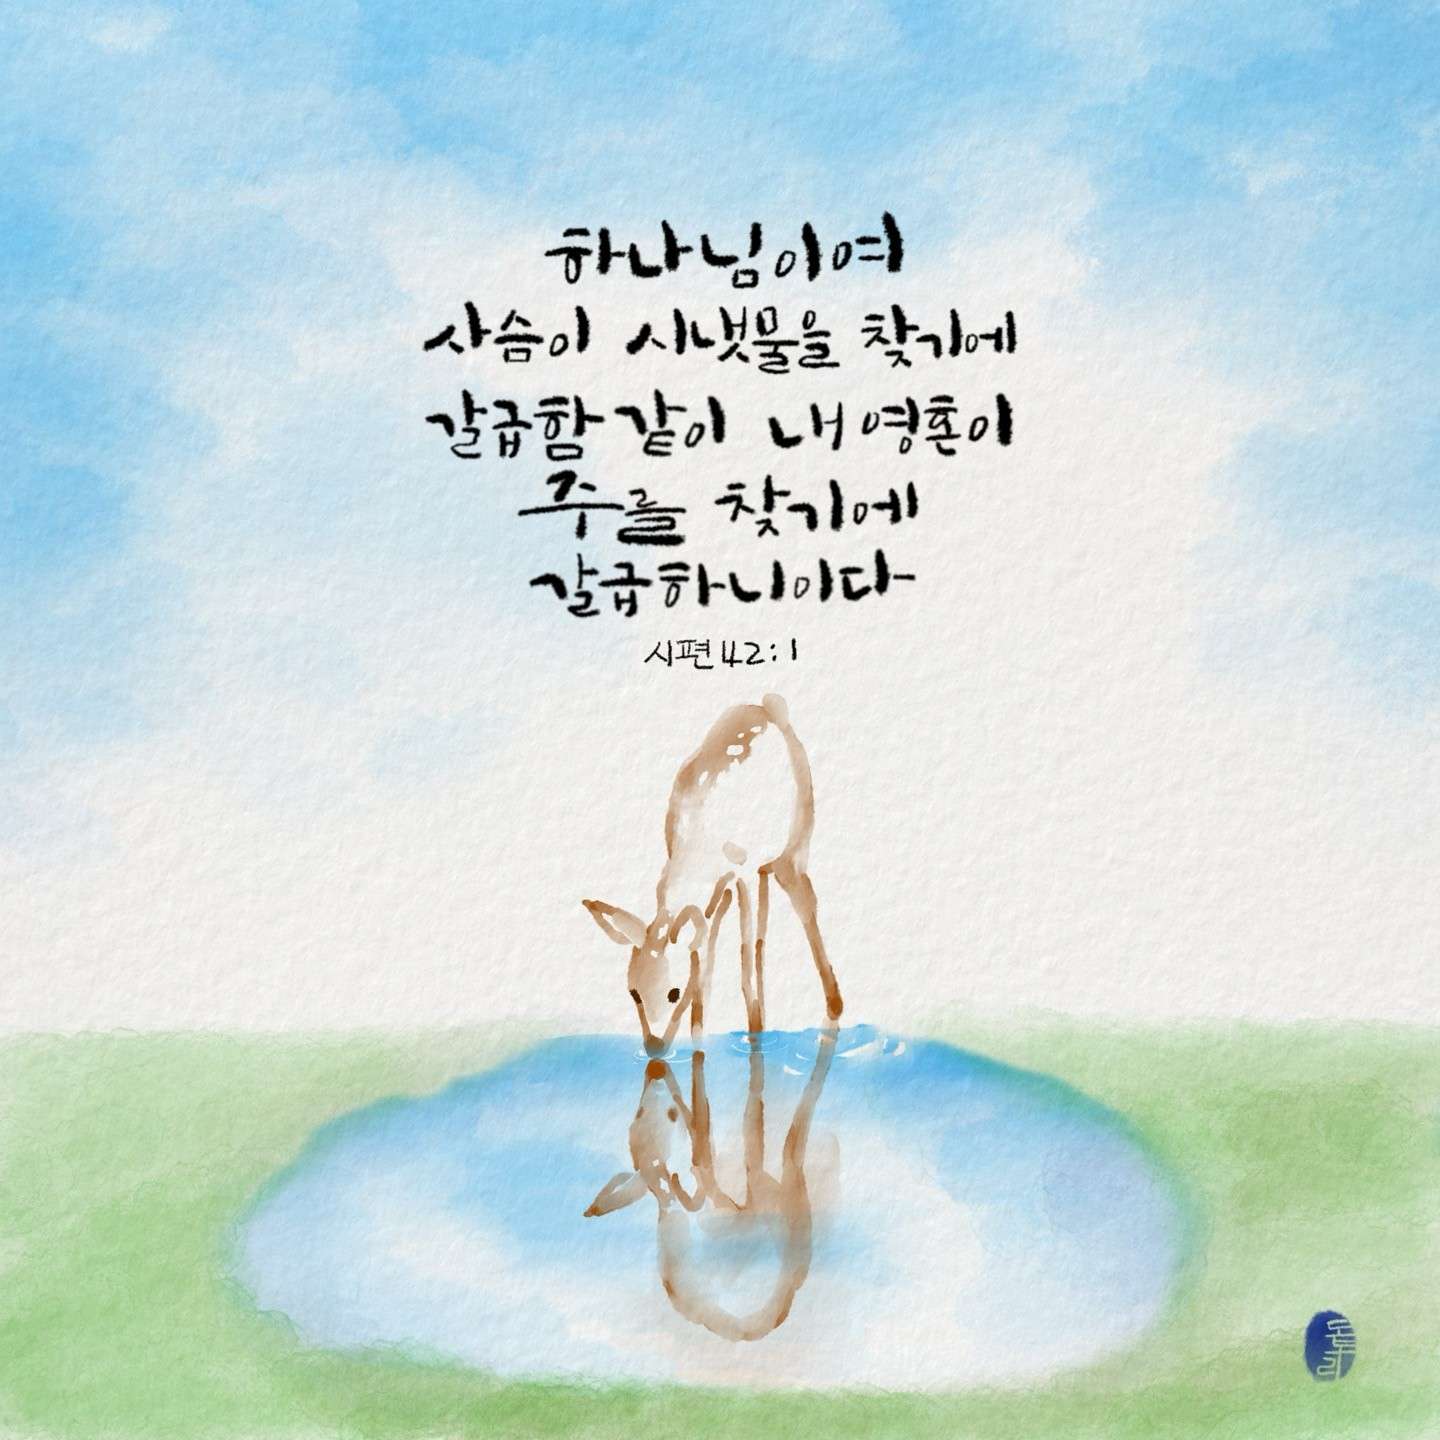 하나님이여
사슴이 시냇물을 찾기에
갈급함 같이 내 영혼이
주를 찾기에
갈급하니이다
시편 42:1